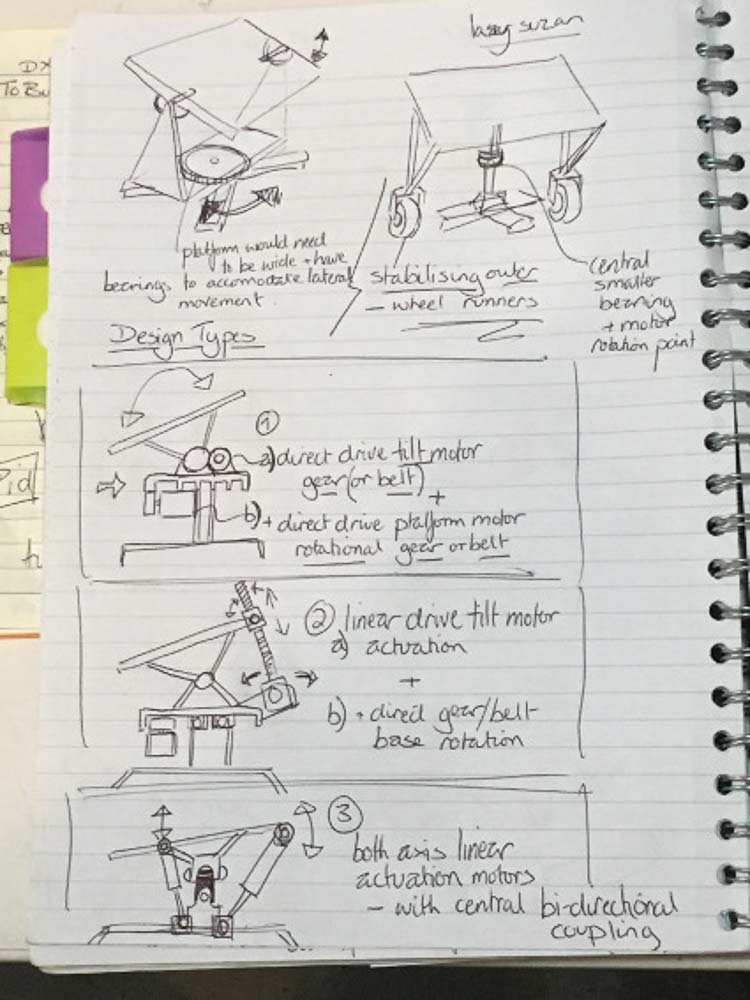 lazy suzan
platform would need
to be wide + have
bearings to accomodate lateral
movement.
stabilising outer
— wheel runners
central
smaller
bearing
+ motor
rotation point
Design Types
①
a) direct drive tilt motor
gear (or belt)
+
b) + direct drive platform motor
rotational gear or belt
② linear drive tilt motor
a) actuation
+
b) + direct gear/belt
base rotation
③
both axis linear
actuation motors
— with central bi-directional
coupling
To Bu